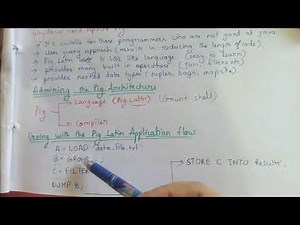 → It suitable for those programmers who are not good at java
→ Uses query approach (results in reducing the length of code)
→ Pig Latin is SQL like language (easy to learn)
→ provides many built in operators (Join,
→ provides nested data types (tuples, bags, maps)
the Pig Architecture
Pig
→ Language (Pig Latin) (Grunt shell)
→ Compiler
with the Pig Latin Application flow
A = LOAD 'data_file.txt'
B = GROUP
C = FILTER
DUMP B;
STORE C INTO 'Results';